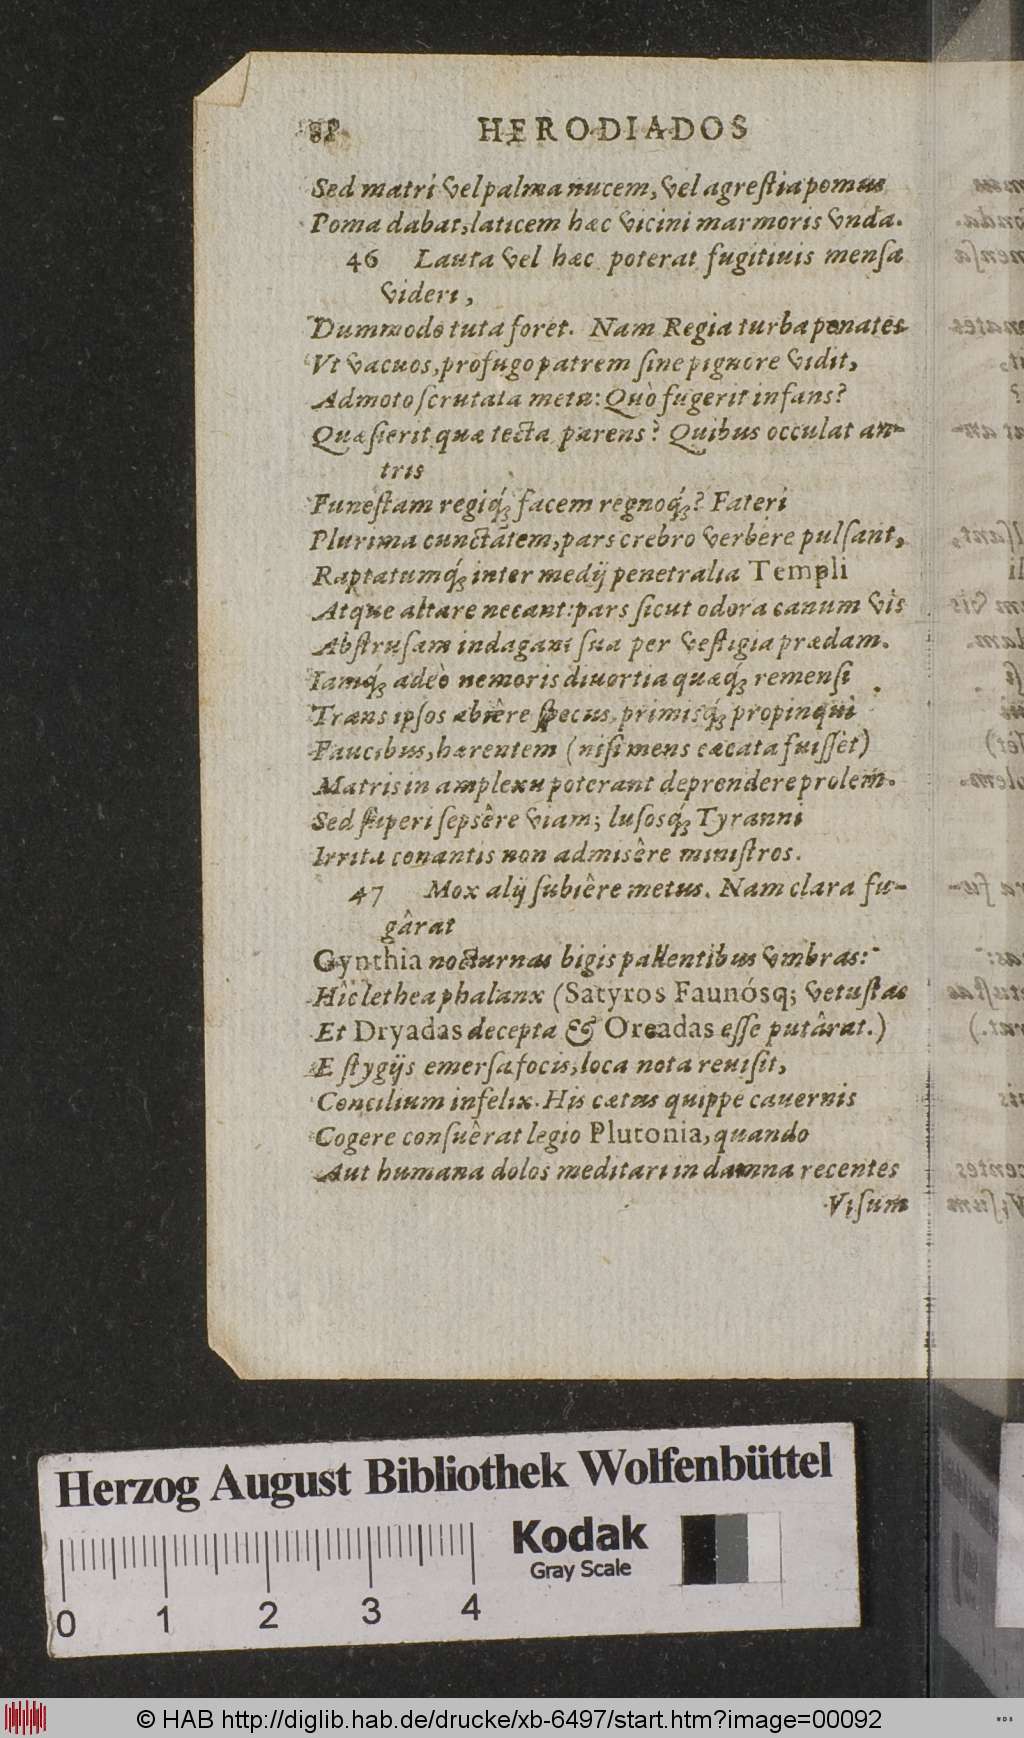 HERODIADOS
Sed matri vel palma nucem, vel agreſtia pomus
Poma dabat, laticem hæc vicini marmoris vnda.
46 Lauta vel hæc poterat fugitiuis menſa
videri,
Dummodo tuta foret. Nam Regia turba penates
Vt vacuos, profugo patrem ſine pignore vidit,
Admoto ſcrutata metu: Quò fugerit infans?
Quæſierit quæ tecta parens? Quibus occulat an-
tris
Funeſtam regiq́; facem regnoq́;? Fateri
Plurima cunctãtem, pars crebro verbere pulſant,
Raptatumq́; inter medij penetralia Templi
Atque altare necant: pars ſicut odora canum vis
Abſtruſam indagant ſua per veſtigia prædam.
Iamq́; adeò nemoris diuortia quæq́; remenſi
Trans ipſos abiêre ſpecus, primisq́; propinqui
Faucibus, hærentem (niſi mens cæcata fuiſſet)
Matris in amplexu poterant deprendere prolem.
Sed ſuperi ſepsêre viam; luſosq́; Tyranni
Irrita conantis non admisêre miniſtros.
47 Mox alij ſubiêre metus. Nam clara fu-
gârat
Cynthia nocturnas bigis pallentibus vmbras:
Hîc lethea phalanx (Satyros Faunósq; vetuſtas
Et Dryadas decepta & Oreadas eſſe putârat.)
E ſtygijs emerſa focis, loca nota reuiſit,
Concilium infelix. His cætus quippe cauernis
Cogere conſuêrat legio Plutonia, quando
Aut humana dolos meditari in damna recentes
Viſum
Herzog August Bibliothek Wolfenbüttel
Kodak
Gray Scale
0 1 2 3 4
© HAB http://diglib.hab.de/drucke/xb-6497/start.htm?image=00092